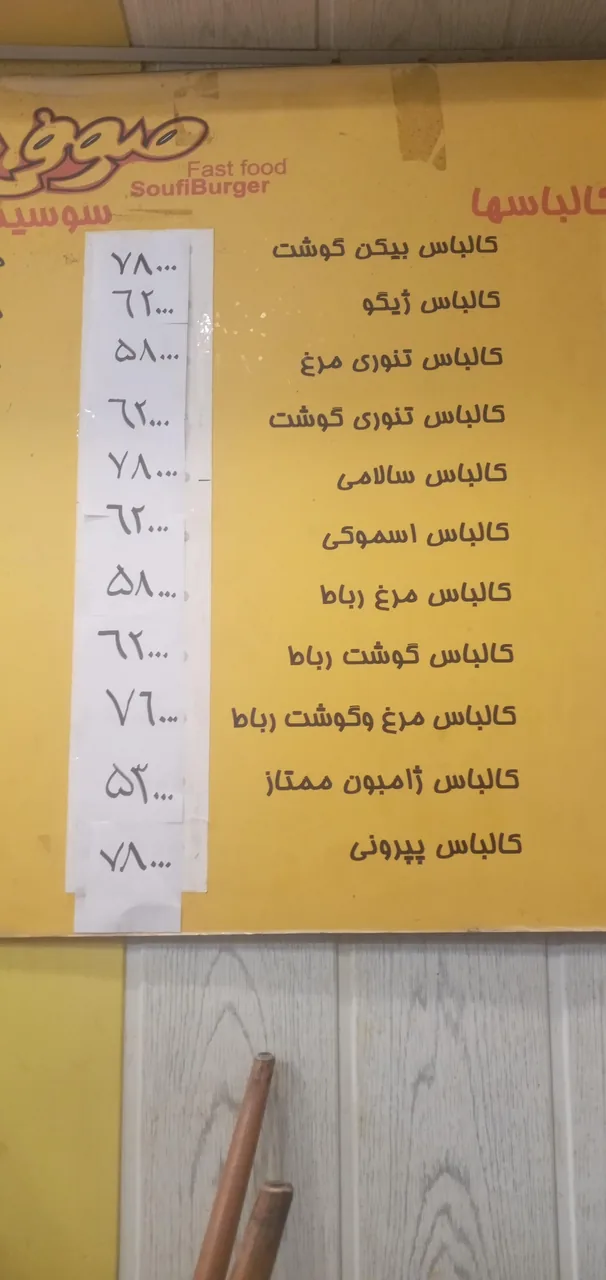 صوفی
Fast food
SoufiBurger
کالباسها
سوسی
کالباس بیکن گوشت ۷۸۰۰۰
کالباس ژیگو ۶۲۰۰۰
کالباس تنوری مرغ ۵۸۰۰۰
کالباس تنوری گوشت ۶۲۰۰۰
کالباس سالامی ۷۸۰۰۰
کالباس اسموکی ۶۲۰۰۰
کالباس مرغ رباط ۵۸۰۰۰
کالباس گوشت رباط ۶۲۰۰۰
کالباس مرغ وگوشت رباط ۷۶۰۰۰
کالباس ژامبون ممتاز ۵۳۰۰۰
کالباس پپرونی ۷۸۰۰۰